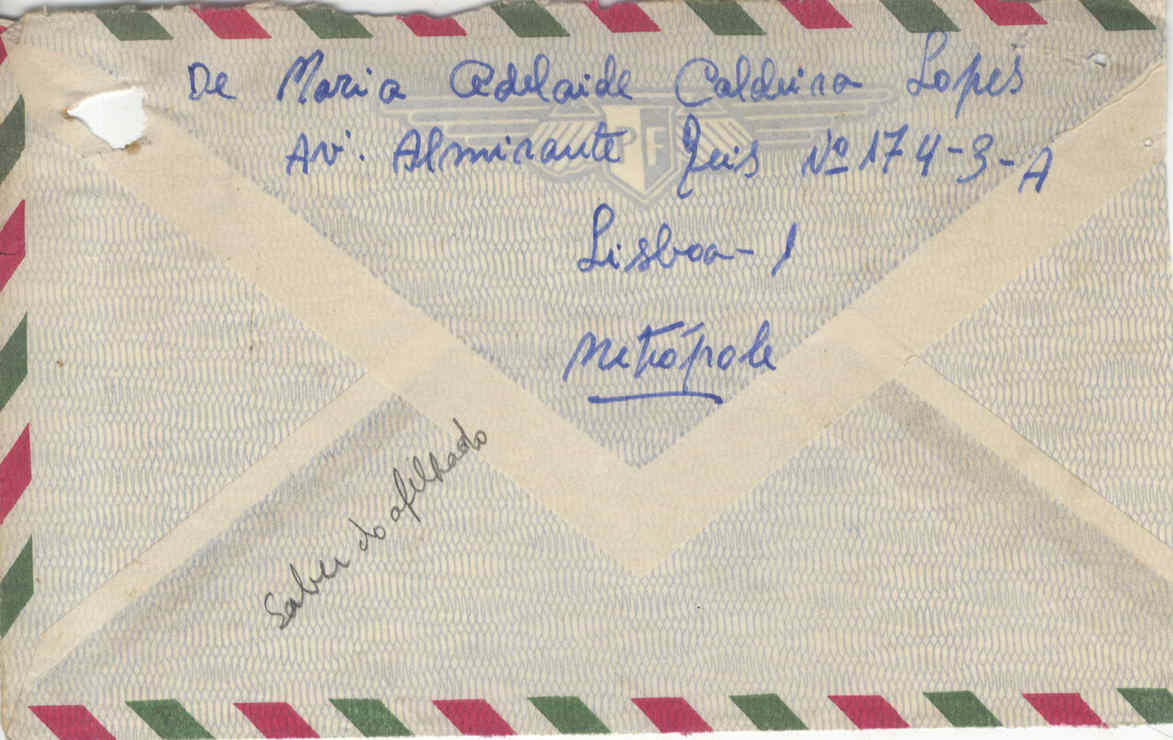 De Maria Adelaide Caldeira Lopes
Av. Almirante Reis Nº 174-3-A
Lisboa-1
Metrópole
Saber do afilhado